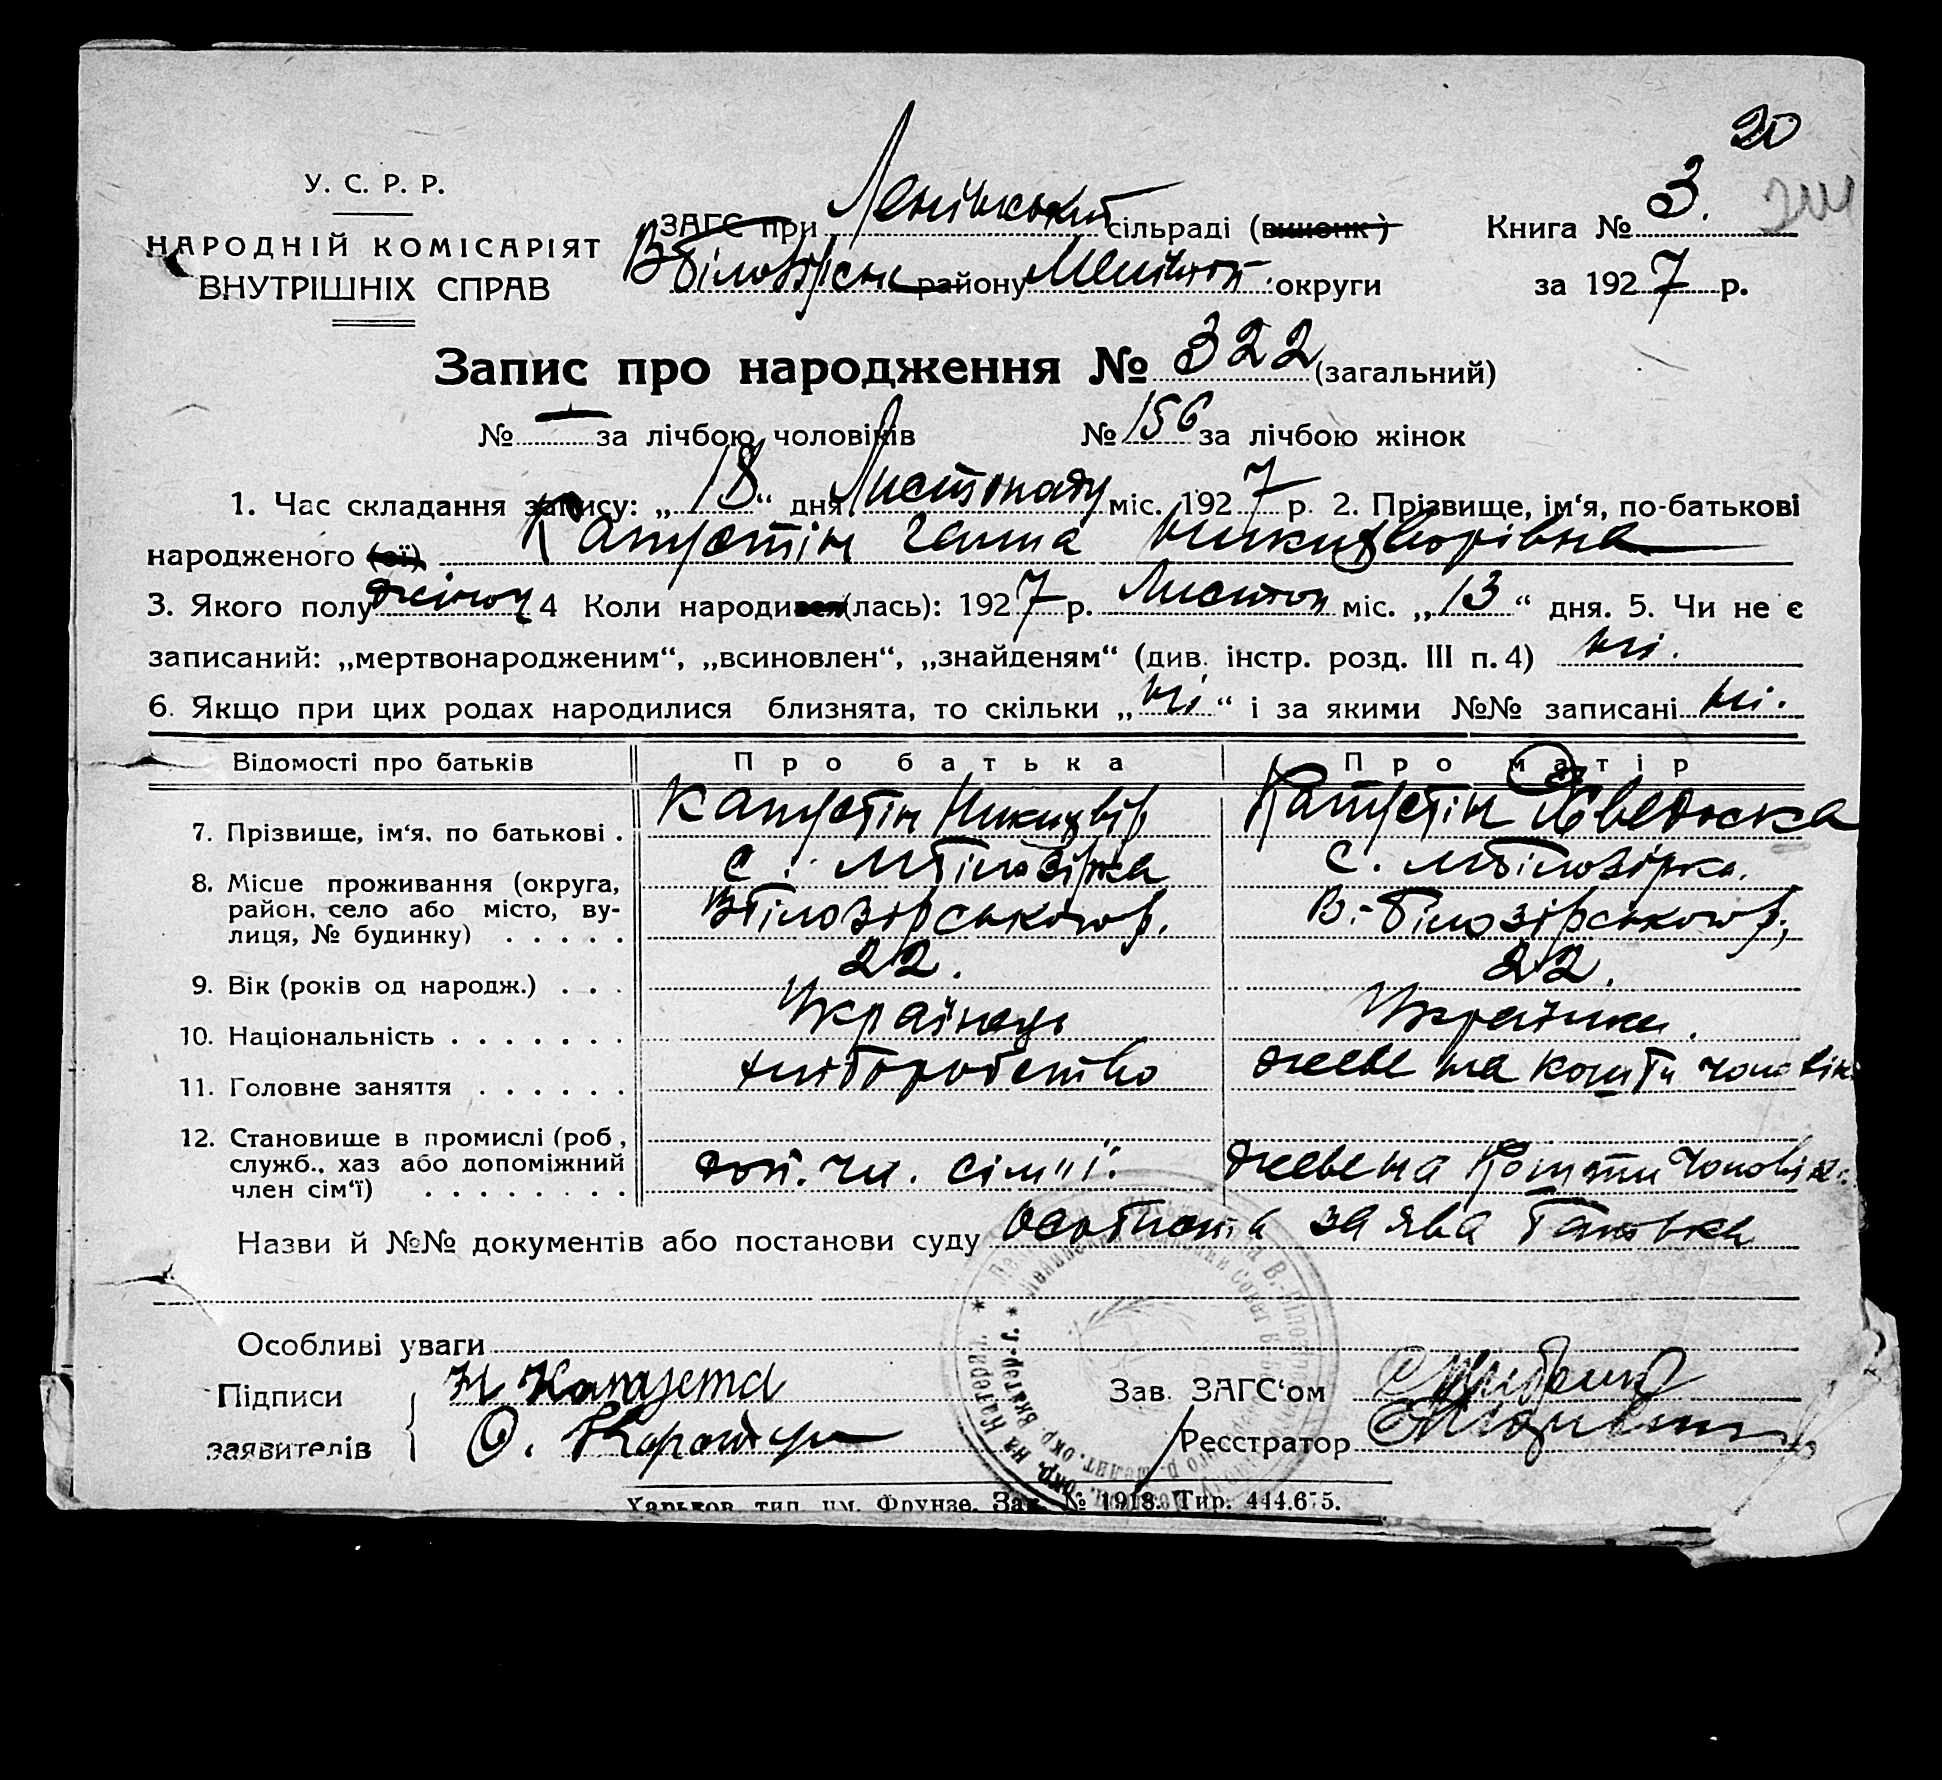 20
У. С. Р. Р.
НАРОДНІЙ КОМІСАРІЯТ
ВНУТРІШНІХ СПРАВ
ЗАГС при Ленінський сільраді (виконк)
Книга № 3.
Вбілозірськ району Мелітоп. округи
за 1927 р.
Запис про народження № 322 (загальний)
№ — за лічбою чоловіків № 156 за лічбою жінок
1. Час складання запису: „18“ дня Листопаду міс. 1927 р. 2. Прізвище, ім‘я, по-батькові
народженого (ої) Капустін Ганна
3. Якого полу жіноч 4 Коли народився (лась): 1927 р. Листоп міс. „13“ дня. 5. Чи не є
записаний: „мертвонародженим“, „всиновлен“, „знайденям“ (див. інстр. розд. III п. 4) ні.
6. Якщо при цих родах народилися близнята, то скільки „ні“ і за якими №№ записані ні.
Відомості про батьків Про батька Про матір
7. Прізвище, ім‘я, по батькові . Капустін Капустін
8. Місце проживання (округа, район, село або місто, вулиця, № будинку) . . . . . с. Мбілозірка с. Мбілозірка.
Вбілозірського р. В.-білозірського р.
9. Вік (років од народж.) . . . 22. 22.
10. Національність . . . . . . . Українець Українка.
11. Головне заняття . . . . . . хліборобство живе на кошти чоловік
12. Становище в промислі (роб., служб., хаз або допоміжний член сім‘ї) . . . . . . . . доп. чл. сім"ї. живе на кошти чоловік.
Назви й №№ документів або постанови суду особиста заява батька
Особливі уваги
Підписи
заявителів
Н Капуста
О.
Зав. ЗАГС‘ом
Реєстратор
Харьков, тип. им. Фрунзе. Зак. № 1918. Тир. 444.675.